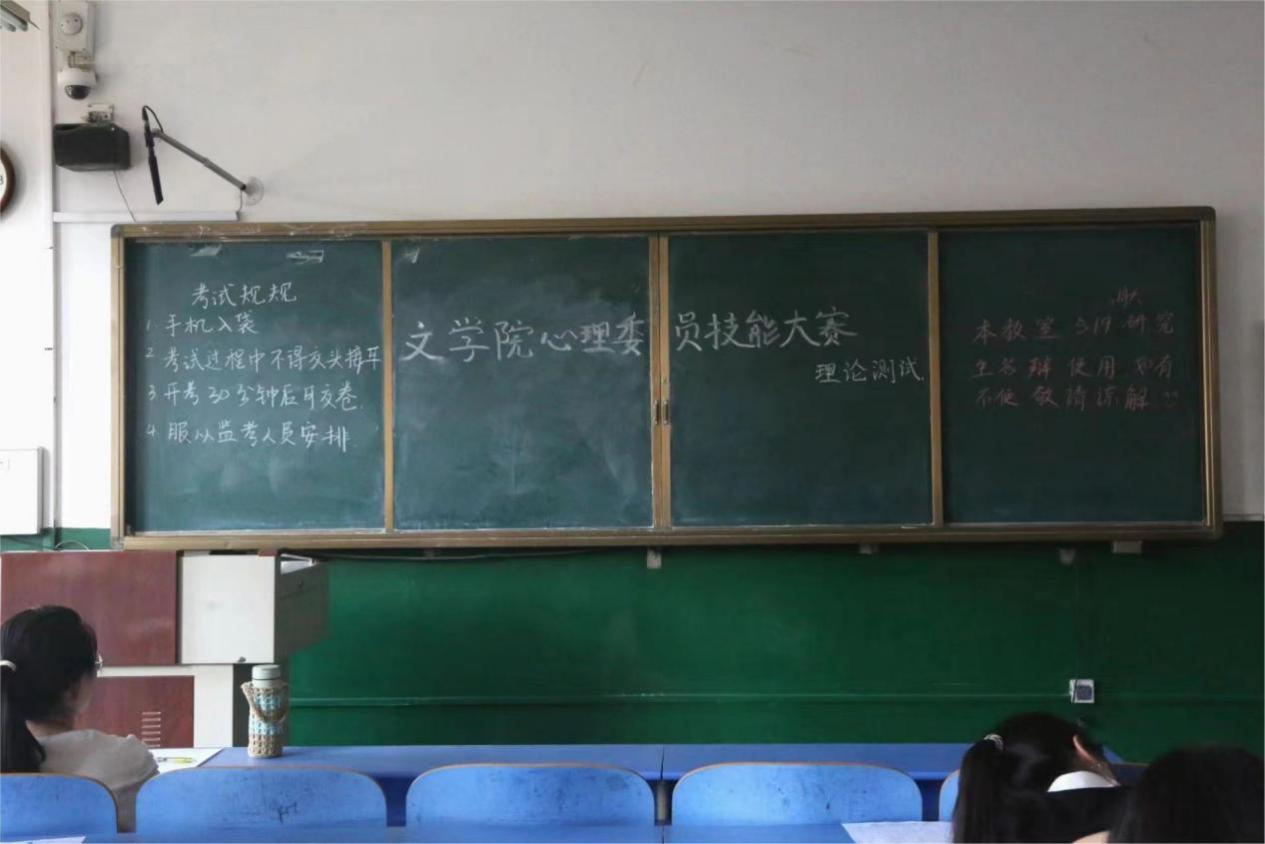 考试规规
1. 手机入袋
2 考试过程中不得交头接耳
3 开考30分钟后可交卷.
4 服从监考人员安排.
文学院心理委员技能大赛
理论测试.
本教室 519 研究
生答辩 使用 如有
不便 敬请谅解